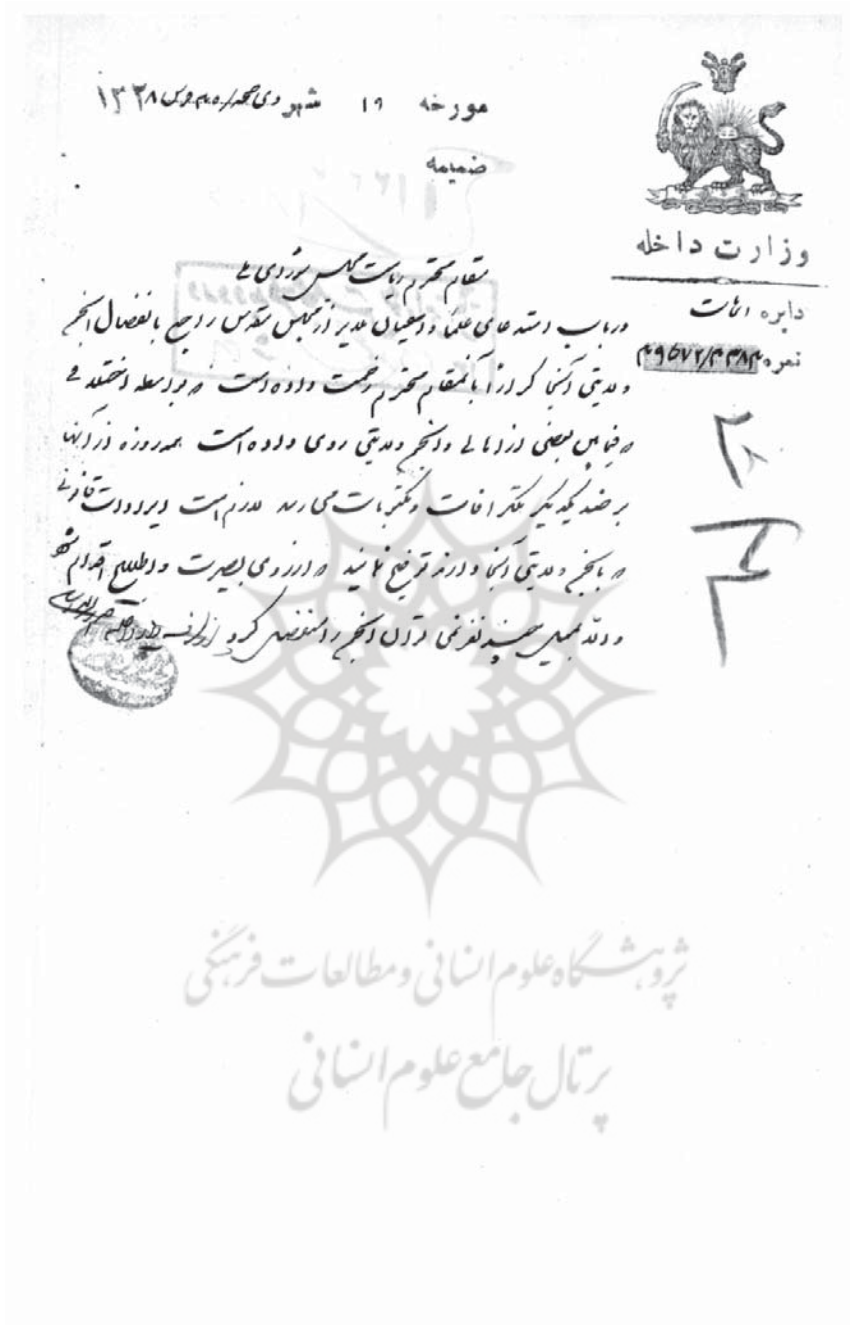 مورخه ۱۹ شهر ذی‌حجه ۱۳۲۸
ضمیمه
وزارت داخله
دایره
نمره
مقام محترم ریاست مجلس شورای ملی
در باب استدعای علما و اعیان ملایر از مجلس مقدس راجع بانفصال انجمن
ولایتی آنجا که از آنمقام محترم زحمت داده است بواسطه اختلافی
که فیمابین بعضی از اهالی و انجمن ولایتی روی داده است همه‌روزه از آنجا
بر ضد یکدیگر تلگرافات و مکتوبات می‌رسد لازم است ایرادات قانونی
که بانجمن ولایتی آنجا دارند توضیح نمایند که از روی بصیرت و اطلاع اقدام شود
و الا بمیل چند نفر نمی‌توان انجمن را منفصل کرد
پژوهشگاه علوم انسانی و مطالعات فرهنگی
پرتال جامع علوم انسانی